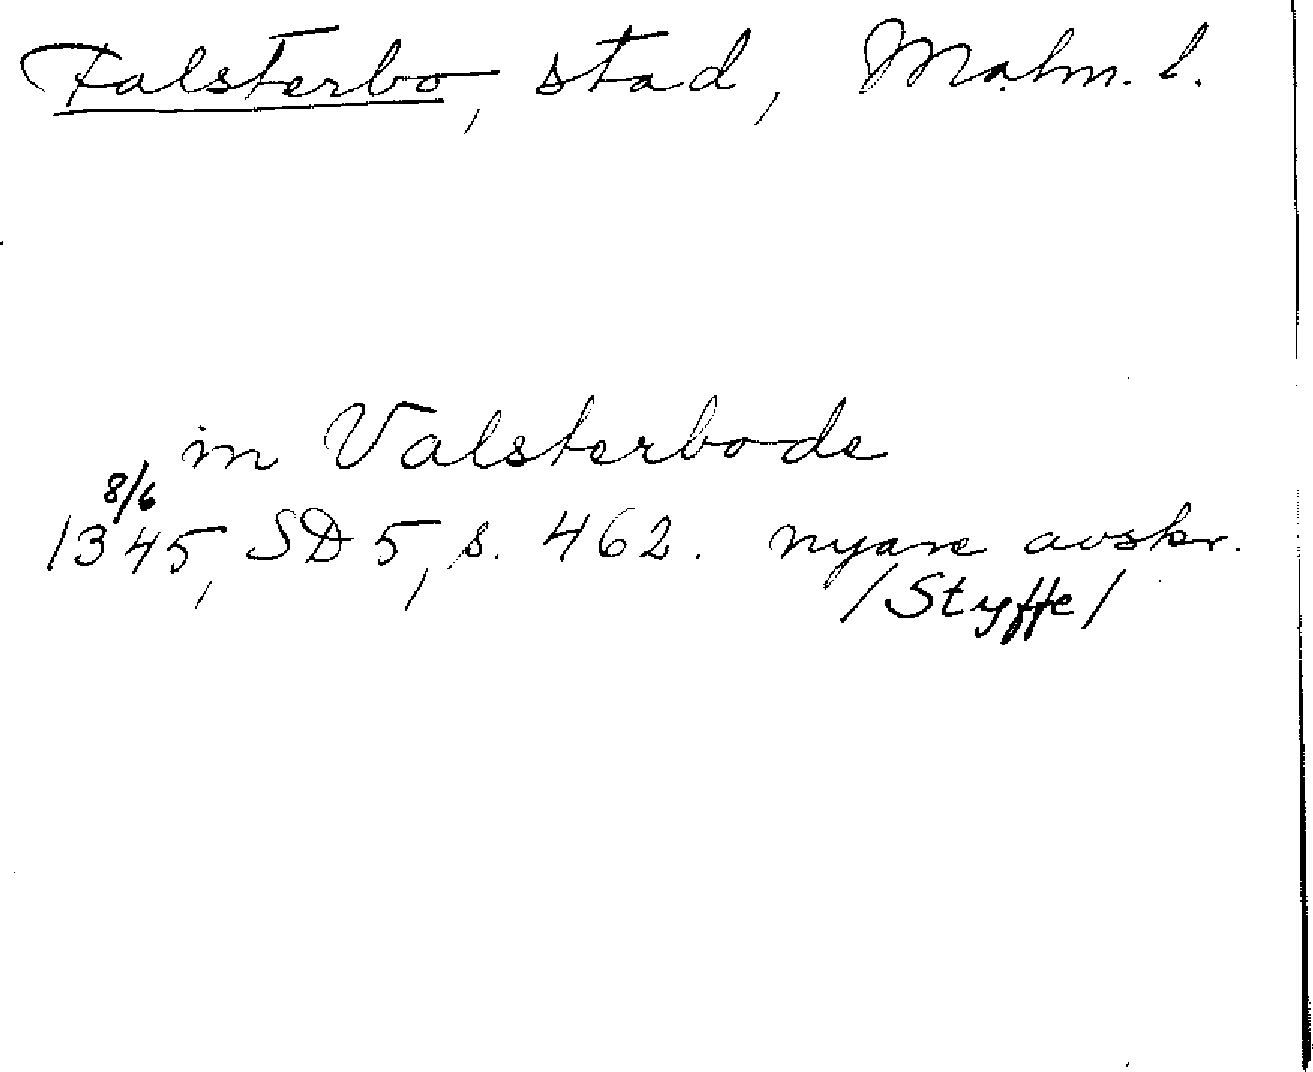 Falsterbo, stad, Malm. l.
in Valsterbode
8/6
1345, SD 5, s. 462. nyare avskr.
/Styffe/